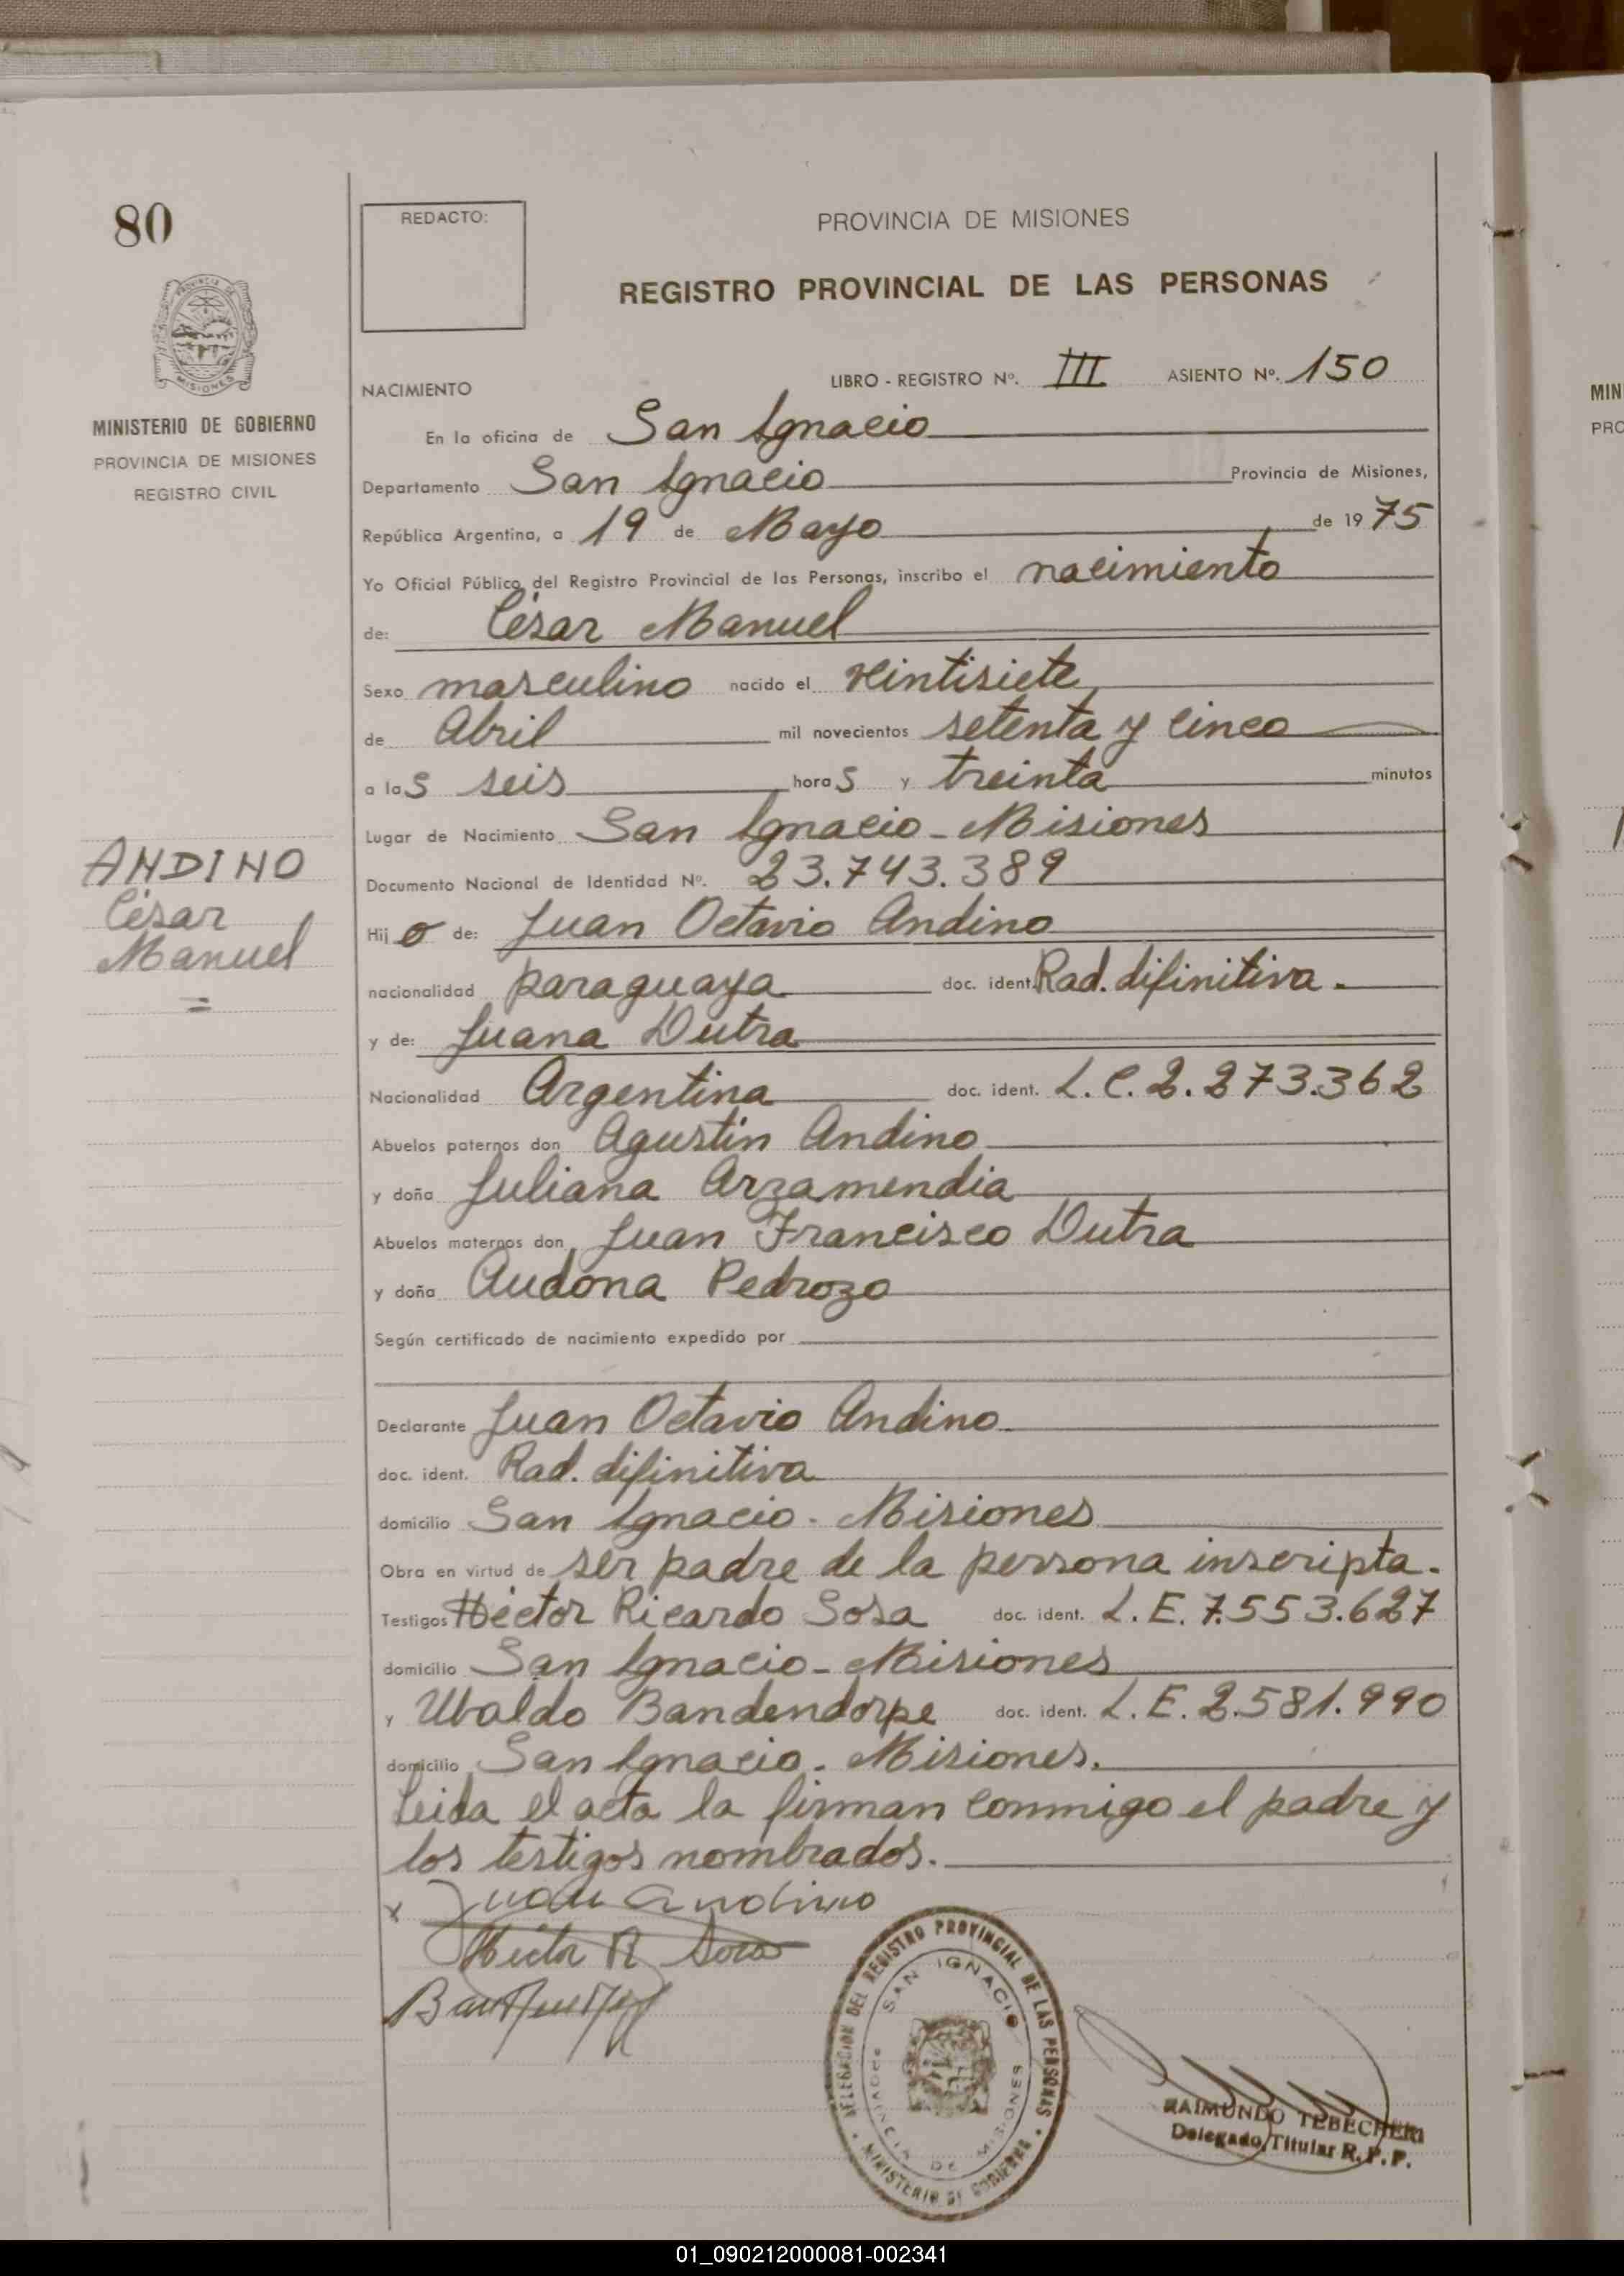 80
REDACTO:
PROVINCIA DE MISIONES
REGISTRO PROVINCIAL DE LAS PERSONAS
LIBRO - REGISTRO Nº. III ASIENTO Nº. 150
NACIMIENTO
MINISTERIO DE GOBIERNO
PROVINCIA DE MISIONES
REGISTRO CIVIL
En la oficina de San Ignacio
Departamento San Ignacio Provincia de Misiones,
República Argentina, a 19 de Mayo de 1975
Yo Oficial Público del Registro Provincial de las Personas, inscribo el nacimiento
de: César Manuel
Sexo masculino nacido el veintisiete
de Abril mil novecientos setenta y cinco
a las seis horas y treinta minutos
Lugar de Nacimiento San Ignacio - Misiones
Documento Nacional de Identidad Nº. 23.743.389
ANDINO
César
Manuel
Hijo de: Juan Octavio Andino
nacionalidad paraguaya doc. ident. Rad. difinitiva.
y de: Juana Dutra
Nacionalidad Argentina doc. ident. L.C. 2.273.362
Abuelos paternos don Agustín Andino
y doña Juliana Arzamendia
Abuelos maternos don Juan Francisco Dutra
y doña Audona Pedrozo
Según certificado de nacimiento expedido por
Declarante Juan Octavio Andino
doc. ident. Rad. difinitiva
domicilio San Ignacio - Misiones
Obra en virtud de ser padre de la persona inscripta.
Testigos Héctor Ricardo Sosa doc. ident. L.E. 7.553.627
domicilio San Ignacio - Misiones
y Ubaldo Bandendorpe doc. ident. L.E. 2.581.990
domicilio San Ignacio - Misiones.
Leida el acta la firman conmigo el padre y
los testigos nombrados.
x Juan Andino
Héctor R. Sosa
DELEGACION DEL REGISTRO PROVINCIAL DE LAS PERSONAS
SAN IGNACIO
PROVINCIA DE MISIONES
MINISTERIO DE GOBIERNO
RAIMUNDO TEBECHERI
Delegado Titular R.P.P.
MIN
PRO
01_090212000081-002341